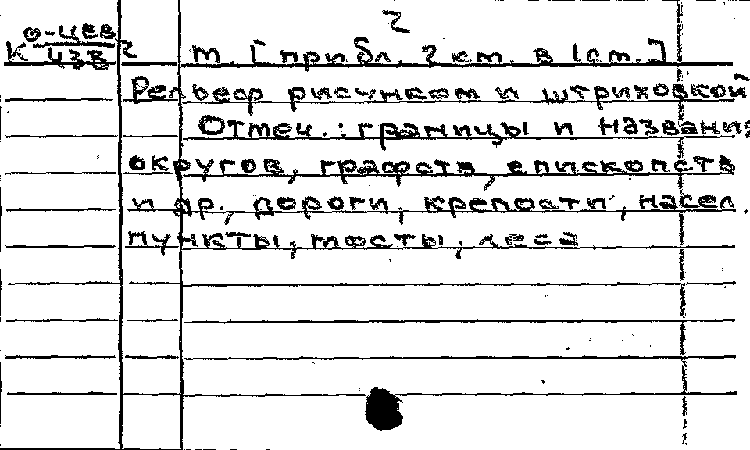 2
К О-ЦЕВ/ЧЗВ 2 М. [прибл. 2 км. в 1 см.]
Рельеф рисунком и штриховкой
Отмеч.: границы и названия
округов, графств, епископств
и др., дороги, крепости, насел.
пункты, мосты, леса